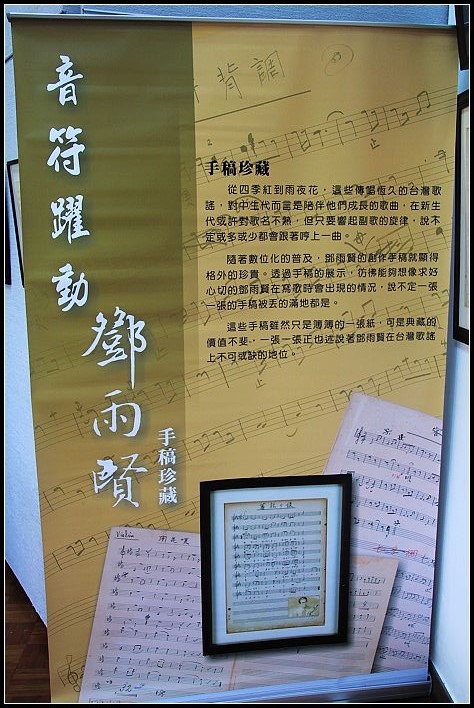 音符躍動
鄧雨賢
手稿珍藏
背調
手稿珍藏
從四季紅到雨夜花，這些傳唱恆久的台灣歌
謠，對中生代而言是陪伴他們成長的歌曲，在新生
代或許對歌名不熟，但只要響起副歌的旋律，說不
定或多或少都會跟著哼上一曲。
隨著數位化的普及，鄧雨賢的創作手稿就顯得
格外的珍貴。透過手稿的展示，彷彿能夠想像求好
心切的鄧雨賢在寫歌時會出現的情況，說不定一張
一張的手稿被丟的滿地都是。
這些手稿雖然只是薄薄的一張紙，可是典藏的
價值不斐，一張一張正也述說著鄧雨賢在台灣歌謠
上不可或缺的地位。
Violin